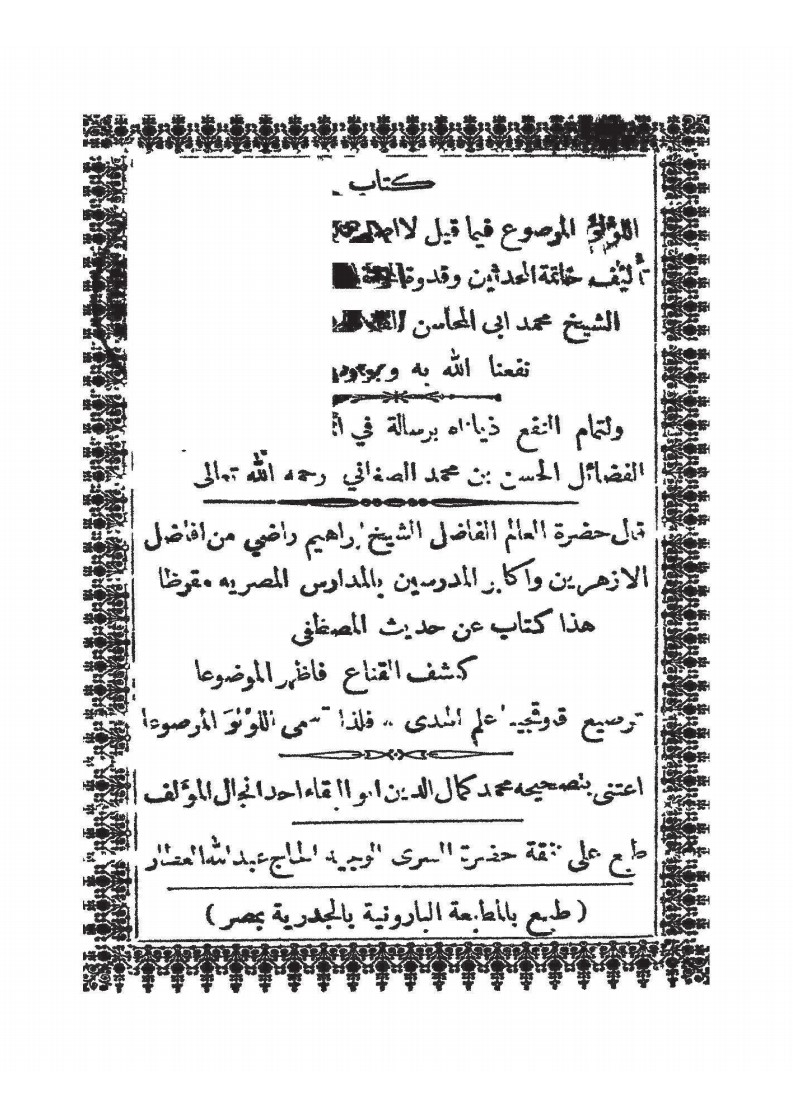 كتاب
اللؤلؤ المرصوع فيما قيل لا
تأليف خاتمة المحدثين وقدوة
الشيخ محمد ابى المحاسن
نفعنا الله به
ولتمام النفع ذيلناه برسالة في
الفضائل الحسن بن محمد الصغاني رحمه الله تعالى
قال حضرة العالم الفاضل الشيخ ابراهيم راضي من افاضل
الازهريين واكابر المدرسين بالمدارس المصريه مقرظا
هذا كتاب عن حديث المصطفى
كشف القناع فاظهر الموضوعا
ترصيع علم الهدى .. فلذا تسمى اللؤلؤ المرصوعا
اعتنى بتصحيحه محمد كمال الدين ابو البقاء احد انجال المؤلف
طبع على نفقة حضرة السرى الوجيه الحاج عبد الله العطار
( طبع بالمطبعة البارونية بالجدرية بمصر )